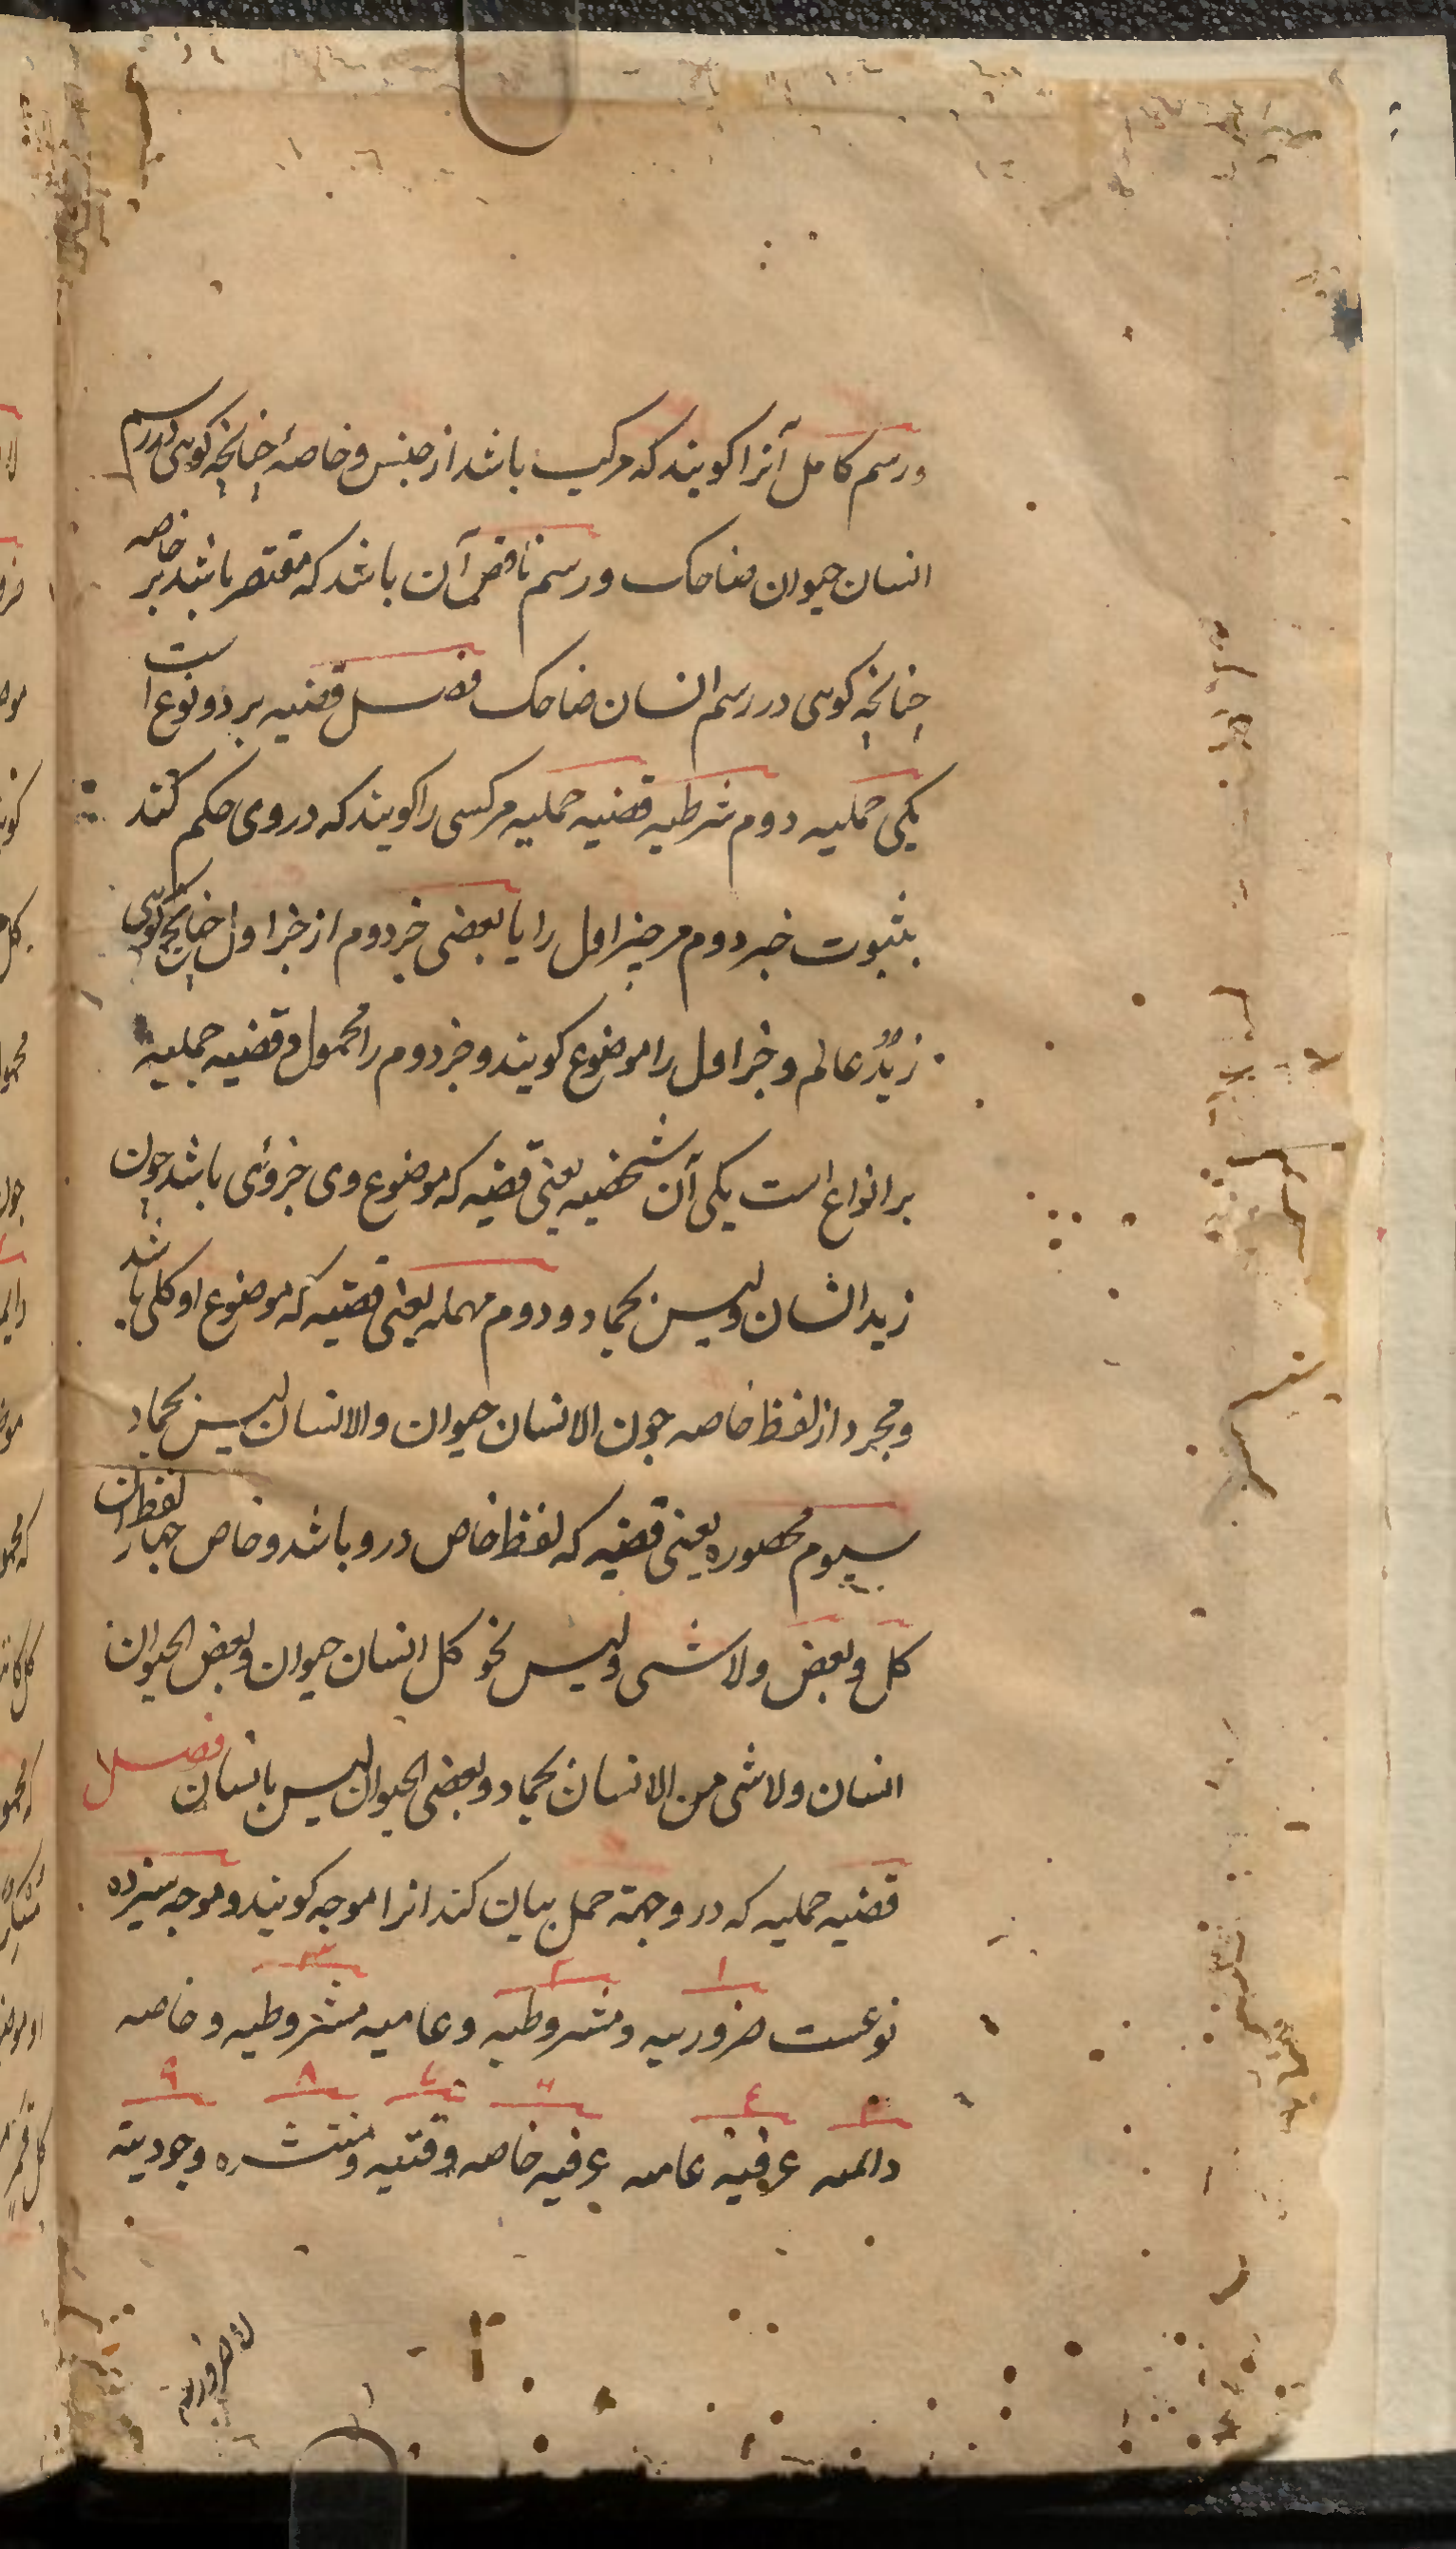 ورسم کامل آنرا کویند که مرکب باشد از جنس و خاصهٔ چنانچه کوئی در رسم
انسان حیوان ضاحک ورسم ناقص آن باشد که مقتصر باشد بر خاصه
چنانچه کوئی در رسم انسان ضاحک فصل قضیه بر دو نوع است
یکی حملیه دوم شرطیه قضیه حملیه مرکسی را کویند که در وی حکم کنند
بثبوت جزء دوم مر جز اول را یا بعضی جز دوم از جز اول چنانچه کوئی
زیدٌ عالم و جز اول را موضوع کویند و جز دوم را محمول و قضیه حملیه
بر انواع است یکی آن شخصیه یعنی قضیه که موضوع وی جزوئی باشد چون
زید انسان ولیس بجماد و دوم مهمله یعنی قضیه که موضوع او کلی باشد
و مجرد از لفظ خاصه چون الانسان حیوان والانسان لیس بجماد
سیوم محصوره یعنی قضیه که لفظ خاص درو باشد و خاص چهار لفظ ان
کل و بعض ولا شی ولیس نحو کل انسان حیوان وبعض الحیوان
انسان ولا شی من الانسان بجماد و بعض الحیوان لیس بانسان فصل
قضیه حملیه که درو جهة حمل بیان کند انرا موجه کویند و موجه سیزده
نوعست ضروریه ومشروطیه وعامیه مشروطیه و خاصه
١ ٢ ٣
دائمه عرفیه عامه عرفیه خاصه وقتیه ومنتشره وجودیته
٤ ٧ ٨ ٩
لا ضروریه